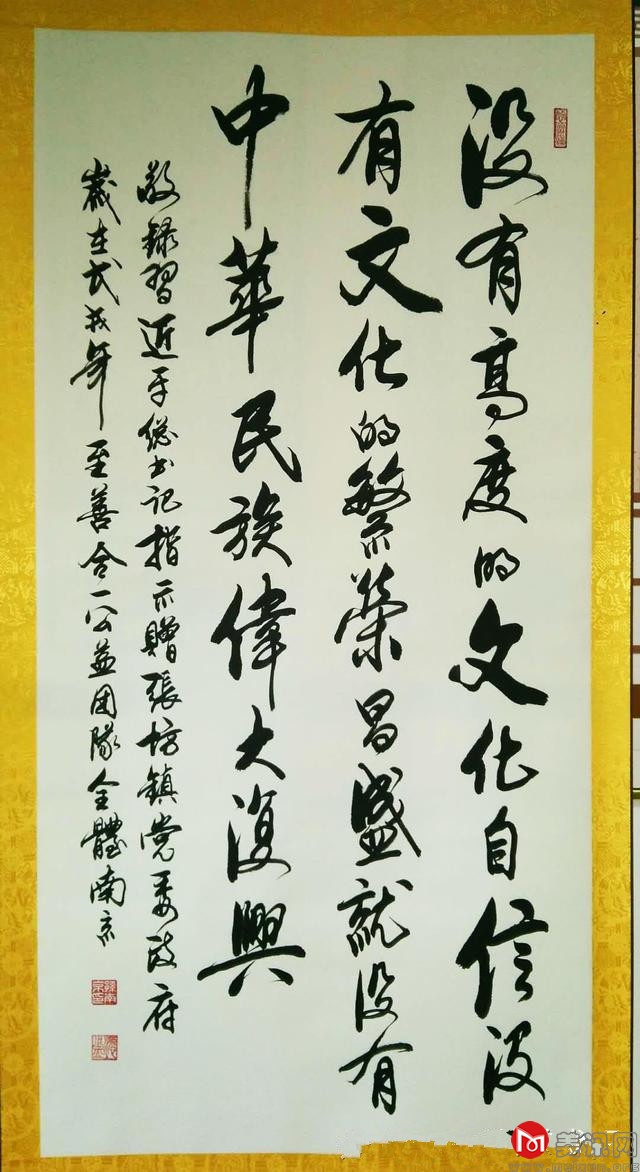 没有高度的文化自信没
有文化的繁榮昌盛就没有
中華民族偉大復興
敬録習近平總書記指示贈張坊鎮党委政府
歲在戊戌年至善合一公益团隊全體南京
美讯网